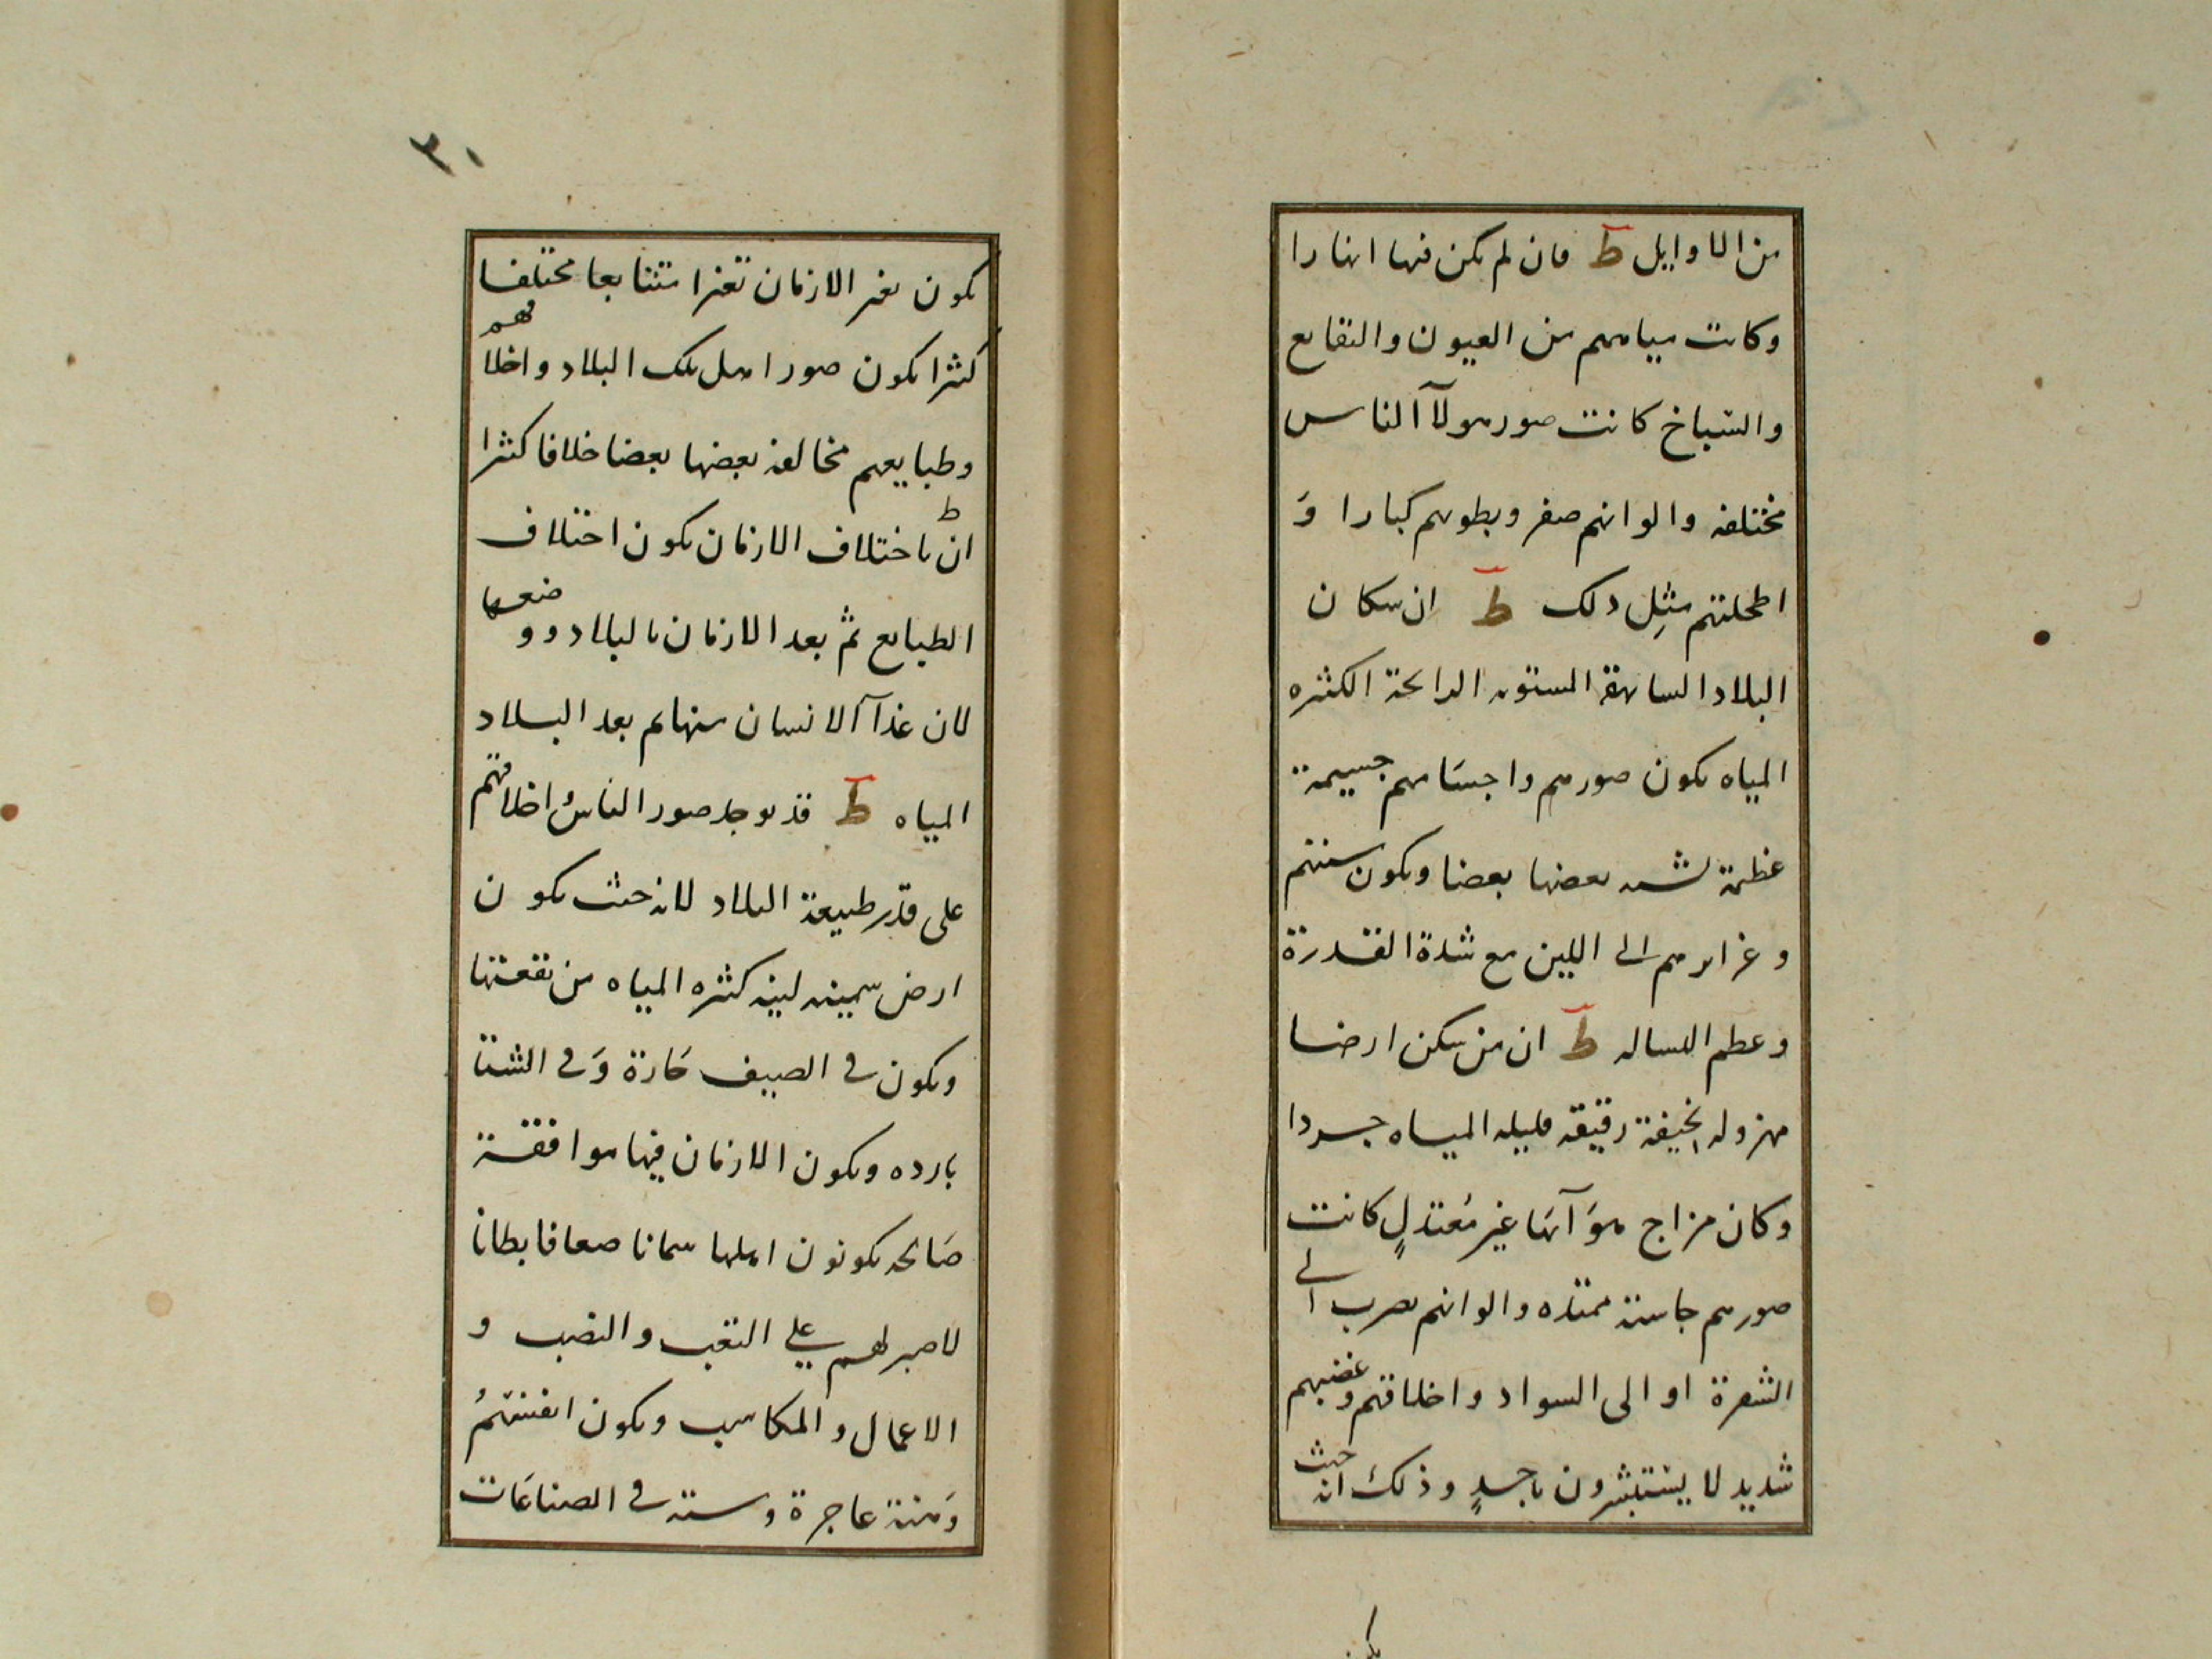 من الاوايل ط فان لم يكن فيها انهارا
وكانت مياههم من العيون والنقايع
والسباخ كانت صور هولآ الناس
مختلفه والوانهم صفر وبطونهم كبارا وَ
اطحلتهم مثل ذلك ط ان سكان
البلاد الساهقة المستويه الرايحة الكثيره
المياه يكون صورهم واجسَامهم جسيمة
عظيمة يشبه بعضها بعضا ويكون سنتهم
وغرايرهم الى اللين مع شدة القدرة
وعظم البساله ط ان من سكن ارضا
مهزوله نحيفة رقيقه قليله المياه جردا
وكان مزاج هوَآئها غير مُعتدلٍ كانت
صورهم جاسية ممتده والوانهم يضرب الى
الشقرة او الى السواد واخلاقهم وغضبهم
شديد لا يستبشرون باحسدٍ وذلك انه حيث
يكون
٣٠
يكون تغير الازمان تغيرا متتابعا مختلفا
كثيرا يكون صور اهل تلك البلاد واخلاقهم
وطبايعهم مخالفه بعضها بعضا خلافا كثيرا
ط ان باختلاف الازمان يكون اختلاف
الطبايع ثم بعد الازمان بالبلاد ووضعها
لان غذآ الانسان منها ثم بعد البلاد
المياه ط قد يوجد صور الناس اخلاقهم
على قدر طبيعة البلاد لانه حيث يكون
ارض سمينه لينه كثيره المياه من نقعتها
ويكون فى الصيف حَارة وَفى الشتا
بارده ويكون الازمان فيها موافقة
صَالحه يكونون اهلها سمانا ضعافا بطانا
لا صبر لهم على التعب والنصب و
الاعمال والمكاسب ويكون انفسهمُ
وَمنة عاجزة وسته فى الصناعَات